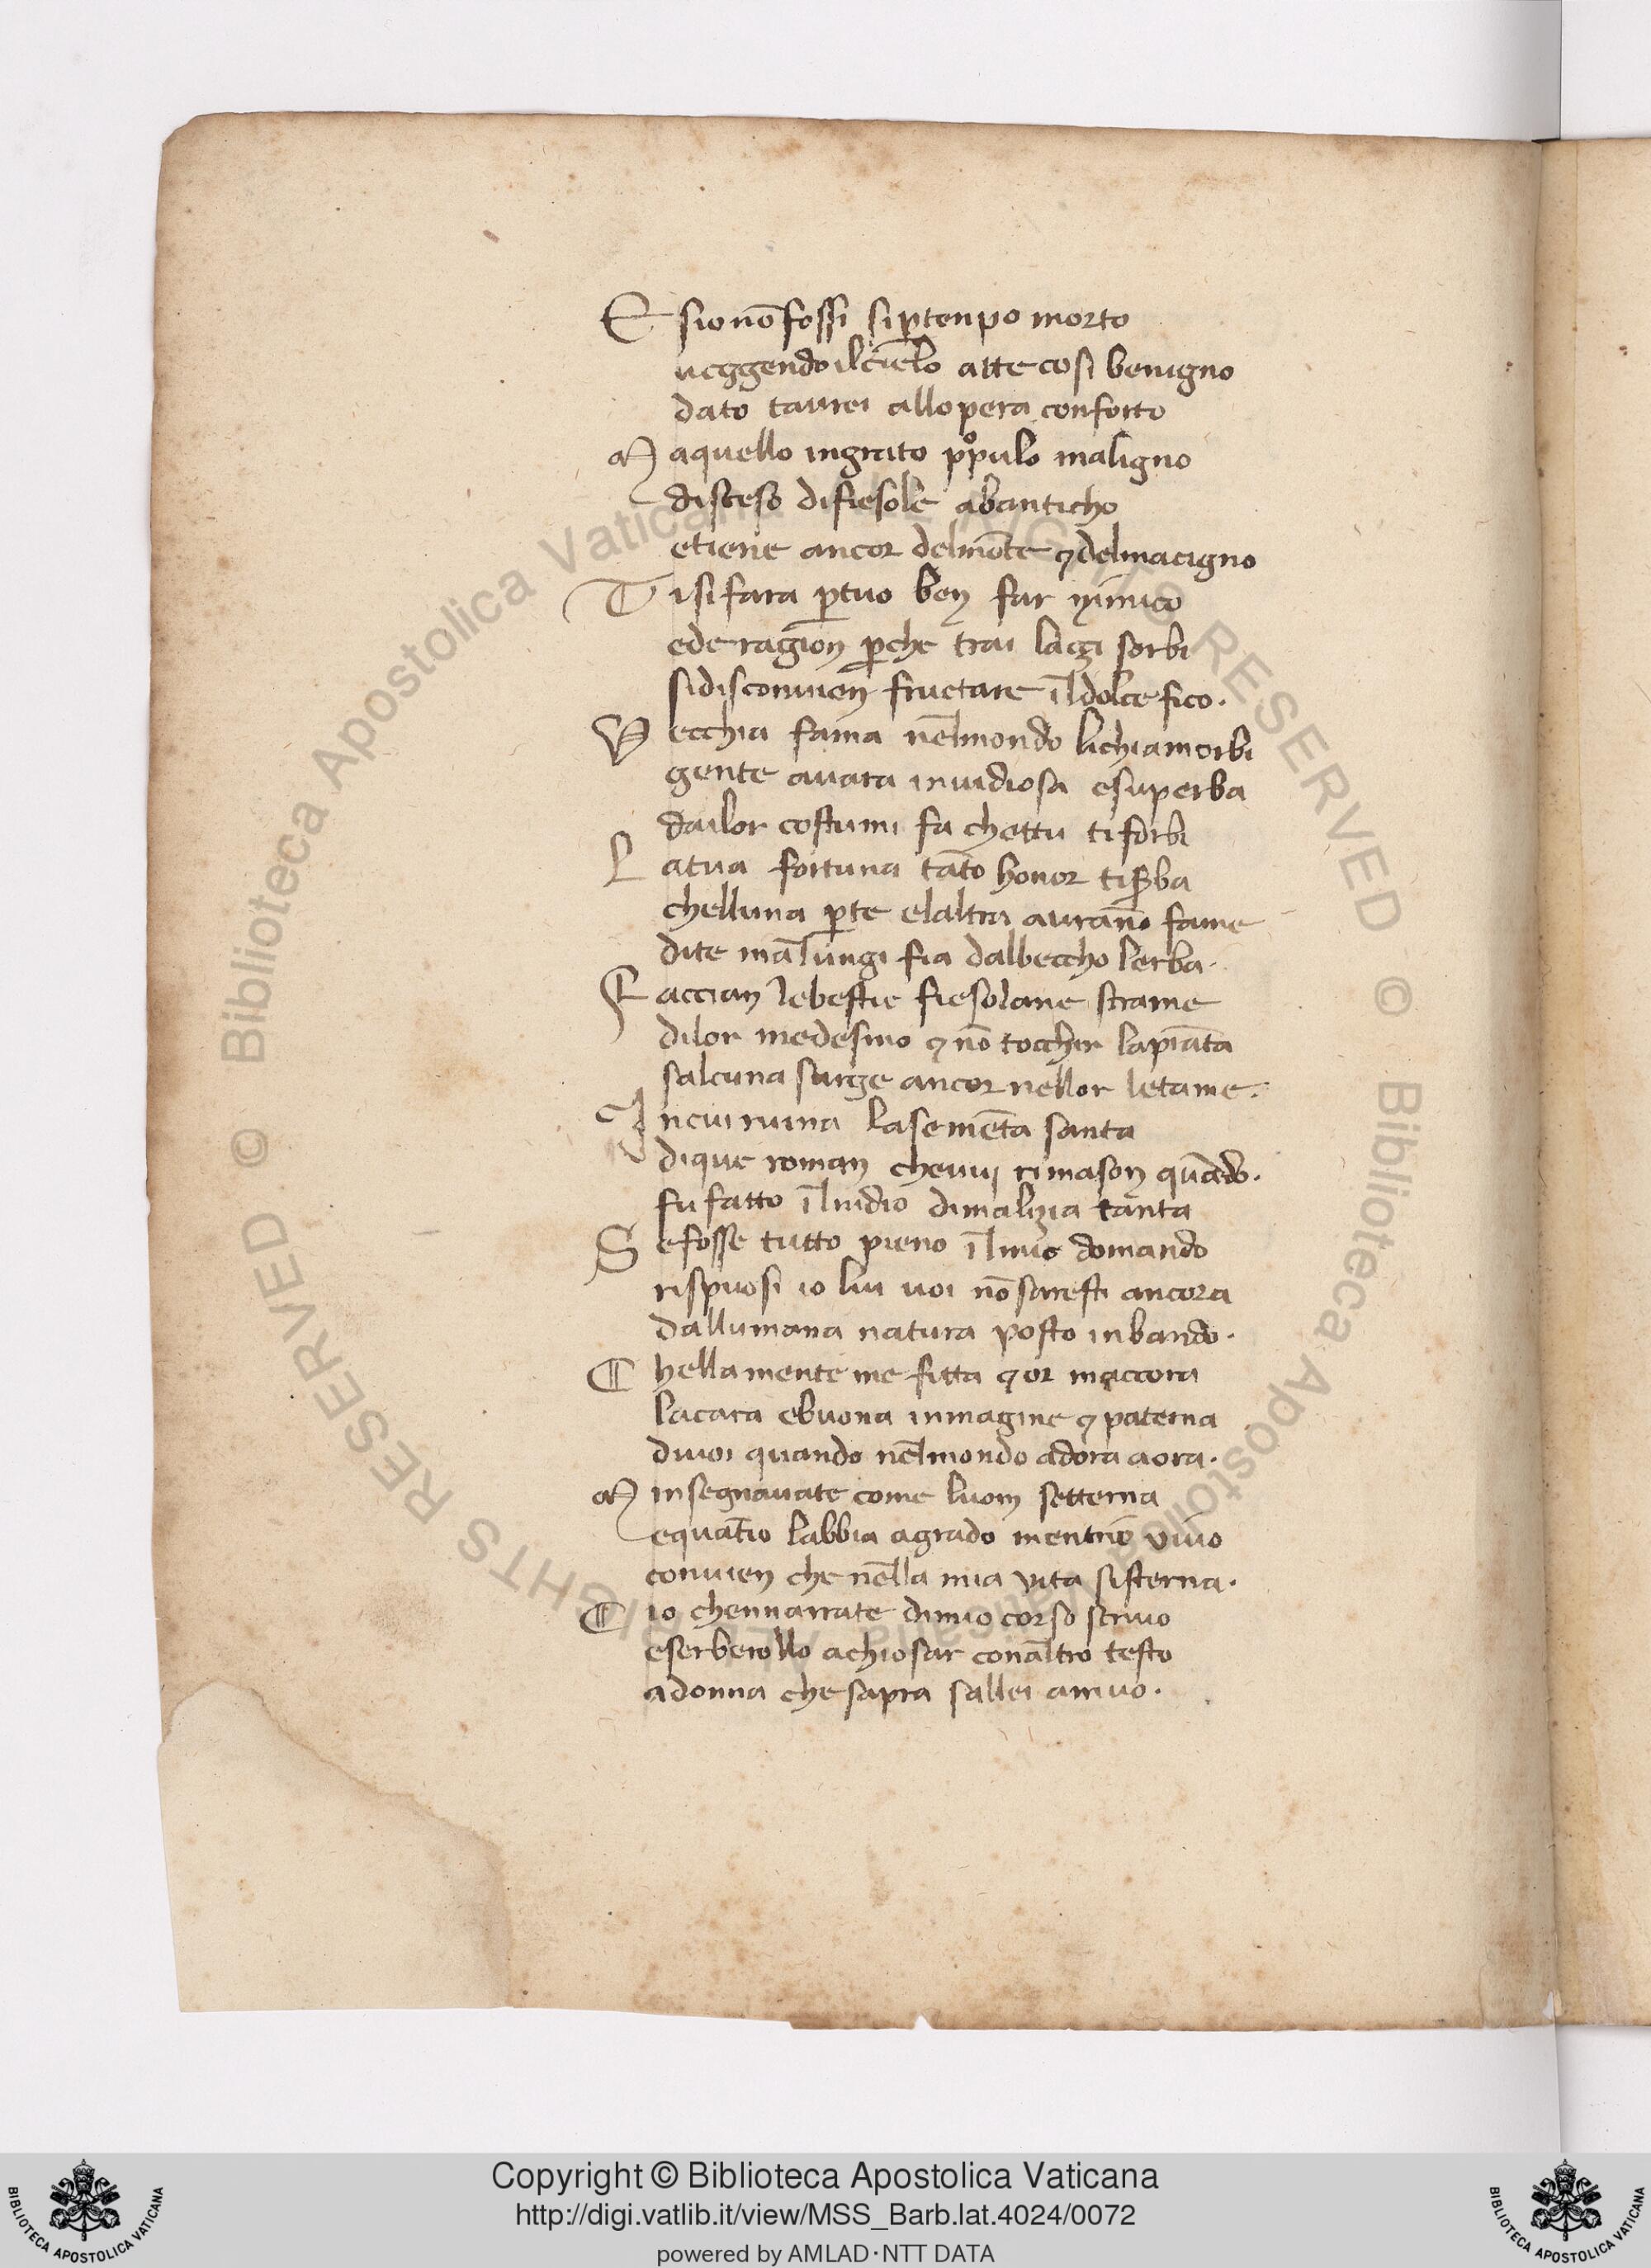 E sio nō fossi si ꝑ tenpo morto
ueggendo ilcielo atte cosi benigno
dato taurei allopera conforto
M aquello ingrato populo maligno
disceso difiesole abanticho
etiene ancor delmōte ꝫ delmacigno
T isi fara ꝑ tuo ben far nimico
ede ragion ꝑche trai lazzi sorbi
sidisconuien fructare il dolce fico.
V ecchia fama nelmondo lichiamorbi
gente auara inuidiosa esuperba
dailor costumi fa chettu ti forbi
L atua fortuna tāto honor tiserba
chelluna ꝑte elaltra aurāno fame
dite ma lungi fia dalbeccho lerba.
F accian lebestie fiesolane strame
dilor medesmo ꝫ nō tocchin lapiāta
salcuna surge ancor nellor letame.
I ncui riuiua lasemēta santa
dique roman cheuui rimason quādo.
fu fatto il nidio dimalizia tanta
S efosse tutto pieno il mio domando
rispuosi io lui uoi nō saresti ancora
dallumana natura posto inbando.
C hella mente me fitta ꝫ or maccora
lacara ebuona inmagine ꝫ paterna
diuoi quando nelmondo adora aora.
M insegnauate come luom setterna
equātio labbia agrado mentrio viuo
conuien che nella mia vita sisterna.
C io chennarrate dimio corso scriuo
eserberollo achiosar conaltro testo
adonna che sapra sallei ariuo.
Biblioteca Apostolica Vaticana ALL RIGHTS RESERVED © Biblioteca Apostolica Vaticana ALL RIGHTS RESERVED ©
Copyright © Biblioteca Apostolica Vaticana
http://digi.vatlib.it/view/MSS_Barb.lat.4024/0072
powered by AMLAD·NTT DATA
BIBLIOTECA APOSTOLICA VATICANA
BIBLIOTECA APOSTOLICA VATICANA